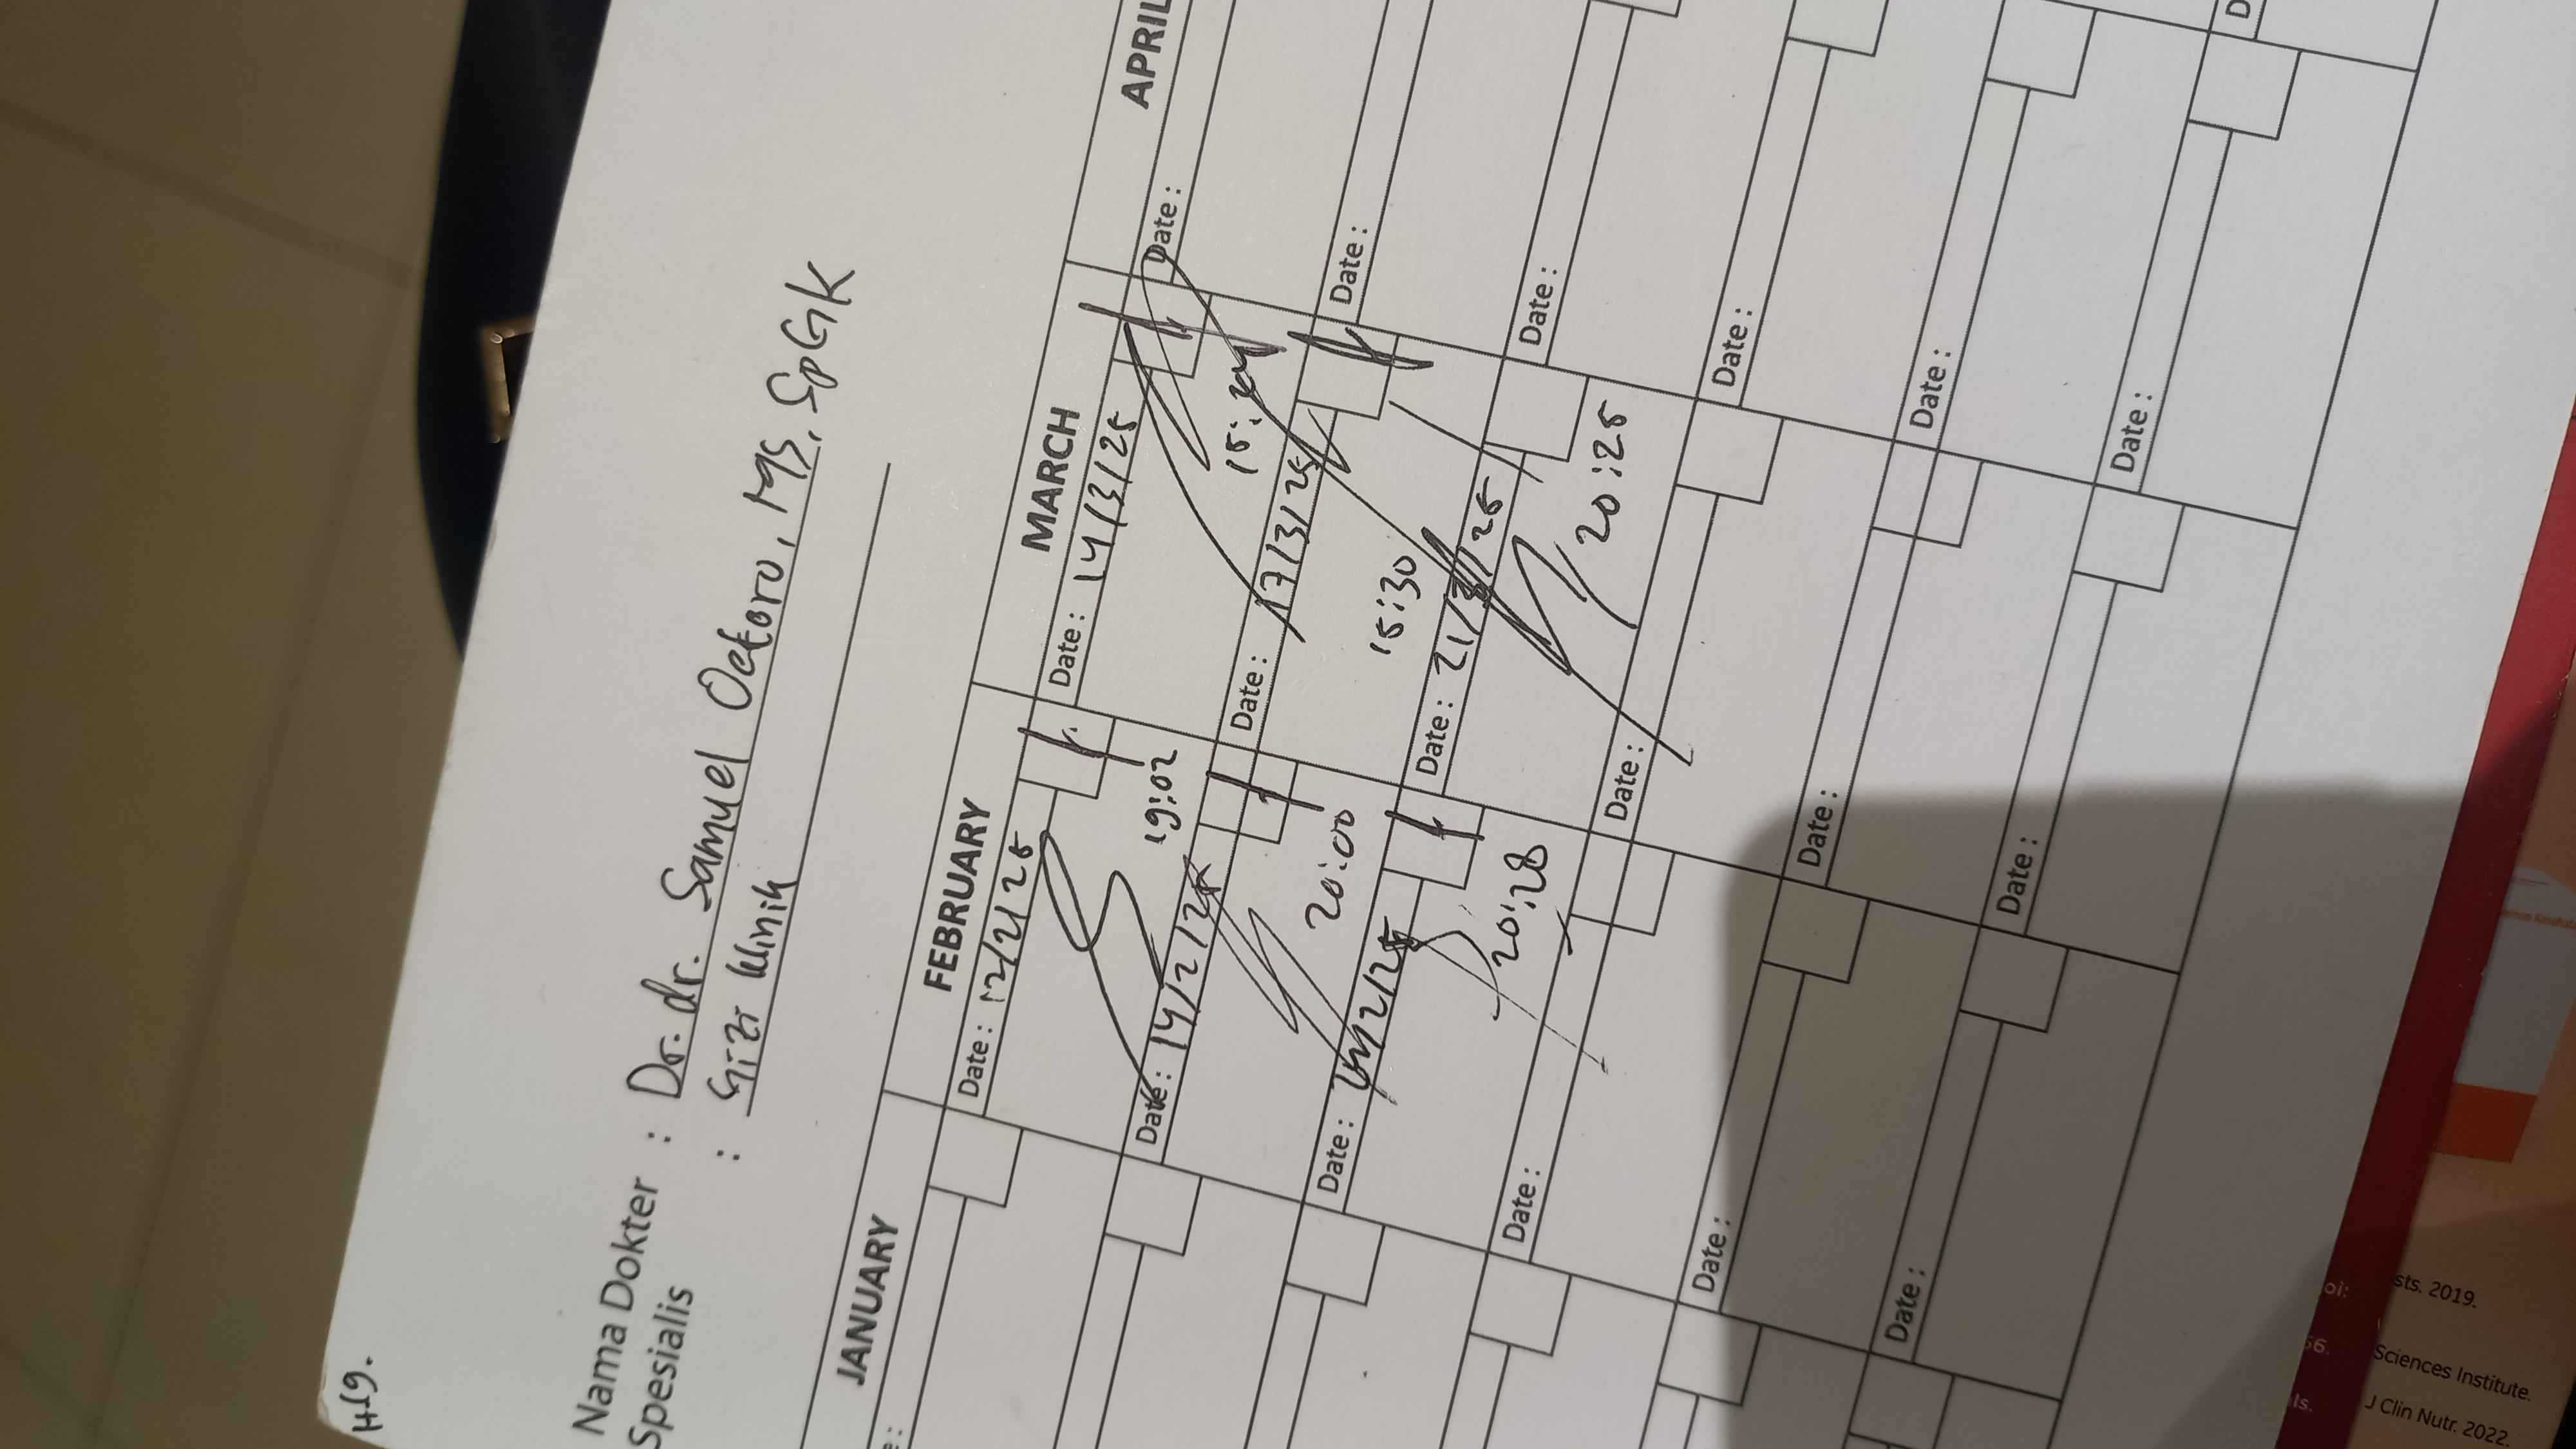 H19.
Nama Dokter : Dr. dr. Samuel Oetoro, MS, SpGK
Spesialis : Gizi Klinik
JANUARY FEBRUARY MARCH APRIL
Date : 12/2/25
19:02
Date : 14/2/25
20:00
Date : /2/25
20:28
Date :
Date :
Date :
Date : 14/3/25
Date : 17/3/25
15:30
Date : 21/3/25
20:25
Date :
Date :
Date :
Date :
Date :
Date :
Date :
Date :
Date :
sts. 2019.
Sciences Institute.
J Clin Nutr. 2022.